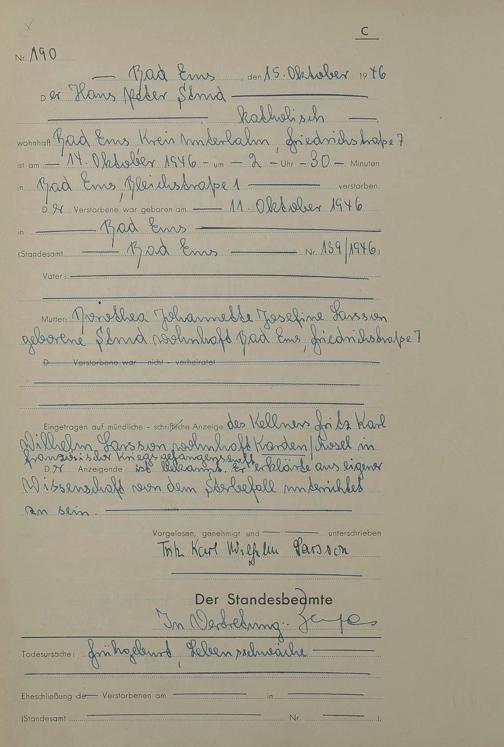 C
Nr. 190
— Bad Ems den 15. Oktober 1946
Der Hans Peter
katholisch —
wohnhaft Bad Ems Kreis Unterlahn, Friedrichstraße 7
ist am — 14. Oktober 1946 — um — 2 — Uhr — 30 — Minuten
in Bad Ems, Bleichstraße 1 — verstorben.
Der Verstorbene war geboren am — 11. Oktober 1946
in — Bad Ems —
(Standesamt — Bad Ems — Nr. 159/1946)
Vater: —
Mutter: Dorothea Johannette Josefine Larsson
geborene wohnhaft Bad Ems, Friedrichstraße 7
D Verstorbene war — nicht — verheiratet
Eingetragen auf mündliche – schriftliche Anzeige des Kellners Fritz Karl
Wilhelm Larsson wohnhaft Karden/Mosel in
französischer Kriegsgefangenschaft.
Der Anzeigende ist bekannt. Er erklärte aus eigener
Wissenschaft von dem Sterbefall unterrichtet
zu sein. —
Vorgelesen, genehmigt und — unterschrieben
Fritz Karl Wilhelm Larsson
Der Standesbeamte
In Vertretung:
Todesursache: Frühgeburt, Lebensschwäche —
Eheschließung de — Verstorbenen am — in —
(Standesamt — Nr. — ).